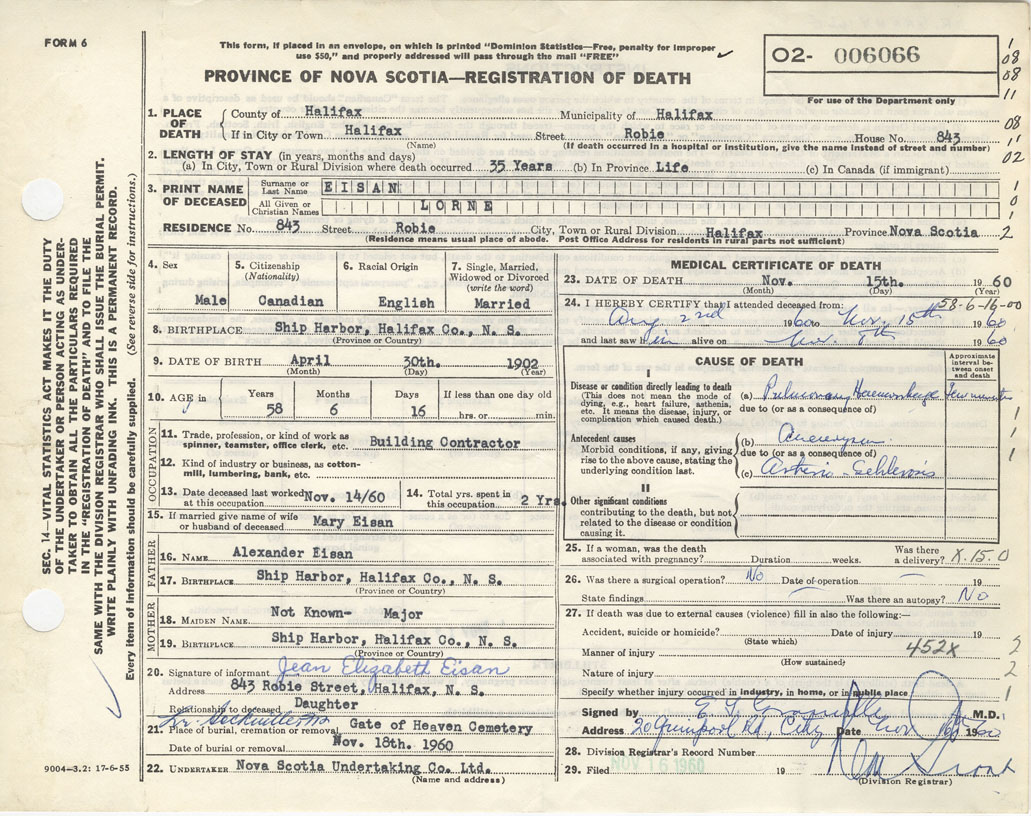 FORM 6
This form, if placed in an envelope, on which is printed "Dominion Statistics—Free, penalty for improper
use $50," and properly addressed will pass through the mail "FREE"
PROVINCE OF NOVA SCOTIA—REGISTRATION OF DEATH
02- 006066
For use of the Department only
1. PLACE OF DEATH County of Halifax Municipality of Halifax
If in City or Town Halifax Street Robie House No. 843
(Name) (If death occurred in a hospital or institution, give the name instead of street and number)
2. LENGTH OF STAY (in years, months and days)
(a) In City, Town or Rural Division where death occurred 35 Years (b) In Province Life (c) In Canada (if immigrant)
3. PRINT NAME OF DECEASED Surname or Last Name EISAN
All Given or Christian Names LORNE
RESIDENCE No. 843 Street Robie City, Town or Rural Division Halifax Province Nova Scotia
(Residence means usual place of abode. Post Office Address for residents in rural parts not sufficient)
08
08
11
08
11
02
1
0
1
2
4. Sex Male
5. Citizenship (Nationality) Canadian
6. Racial Origin English
7. Single, Married, Widowed or Divorced (write the word) Married
8. BIRTHPLACE Ship Harbor, Halifax Co., N. S.
(Province or Country)
9. DATE OF BIRTH April 30th. 1902
(Month) (Day) (Year)
10. AGE in Years Months Days If less than one day old
58 6 16 hrs. or min.
OCCUPATION
11. Trade, profession, or kind of work as spinner, teamster, office clerk, etc. Building Contractor
12. Kind of industry or business, as cotton-mill, lumbering, bank, etc.
13. Date deceased last worked at this occupation Nov. 14/60
14. Total yrs. spent in this occupation 2 Yrs.
15. If married give name of wife or husband of deceased Mary Eisan
FATHER
16. NAME Alexander Eisan
17. BIRTHPLACE Ship Harbor, Halifax Co., N. S.
(Province or Country)
MOTHER
18. MAIDEN NAME Not Known- Major
19. BIRTHPLACE Ship Harbor, Halifax Co., N. S.
(Province or Country)
20. Signature of informant Jean Elizabeth Eisan
Address 843 Robie Street, Halifax, N. S.
Relationship to deceased Daughter
21. Place of burial, cremation or removal Gate of Heaven Cemetery
Date of burial or removal Nov. 18th. 1960
22. UNDERTAKER Nova Scotia Undertaking Co. Ltd.
(Name and address)
MEDICAL CERTIFICATE OF DEATH
23. DATE OF DEATH Nov. 15th. 1960
(Month) (Day) (Year)
58-6-16-00
24. I HEREBY CERTIFY that I attended deceased from:
Aug 22nd 1960 to Nov. 15th 1960
and last saw him alive on Nov. 8th 1960
CAUSE OF DEATH
Approximate interval between onset and death
I
Disease or condition directly leading to death
(This does not mean the mode of dying, e.g., heart failure, asthenia, etc. It means the disease, injury, or complication which caused death.)
(a) Pulmonary Haemorrhage few minutes
due to (or as a consequence of)
Antecedent causes
Morbid conditions, if any, giving rise to the above cause, stating the underlying condition last.
(b) Aneurysm
due to (or as a consequence of)
(c) Arterio-Schlerosis
II
Other significant conditions
contributing to the death, but not related to the disease or condition causing it.
25. If a woman, was the death associated with pregnancy? Duration weeks. Was there a delivery? X.15.0
26. Was there a surgical operation? No Date of operation — 19
State findings Was there an autopsy? No
27. If death was due to external causes (violence) fill in also the following:—
Accident, suicide or homicide? Date of injury 19
(State which)
Manner of injury 452X
(How sustained)
Nature of injury
Specify whether injury occurred in industry, in home, or in public place
Signed by M.D.
Address City Date Nov 1960
28. Division Registrar's Record Number
29. Filed NOV 16 1960 19
(Division Registrar)
SEC. 14—VITAL STATISTICS ACT MAKES IT THE DUTY
OF THE UNDERTAKER OR PERSON ACTING AS UNDER-
TAKER TO OBTAIN ALL THE PARTICULARS REQUIRED
IN THE "REGISTRATION OF DEATH" AND TO FILE THE
SAME WITH THE DIVISION REGISTRAR WHO SHALL ISSUE THE BURIAL PERMIT.
WRITE PLAINLY WITH UNFADING INK. THIS IS A PERMANENT RECORD.
Every item of information should be carefully supplied. (See reverse side for instructions.)
9004—3.2: 17-6-55